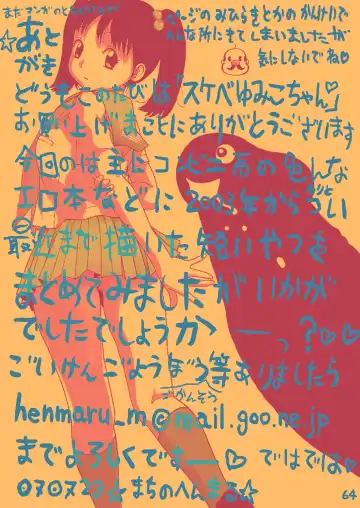 まだマンガのとちゅうですが
ページのみひらきとかのかんけいで
へんな所にきてしまいましたが
気にしないでね♡
☆あとがき
どうもこのたびは「スケベゆみこちゃん」
お買い上げまことにありがとうございます
今回のは主にコンビニ売の色んな
エロ本などに2003年からつい
最近まで描いた短いやつを
まとめてみましたがいかが
でしたでしょうかーっ?♡♡
ごいけんごようぼう等ありましたら
ごかんそう
henmaru_m@mail.goo.ne.jp
までよろしくですー♡ ではでは♡
070723☆まちのへんまる☆
64